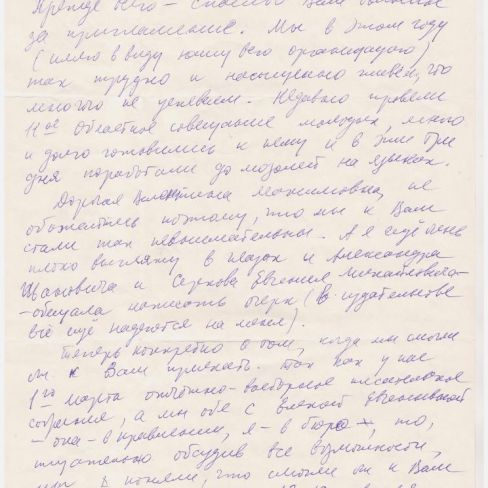 Прежде всего – спасибо Вам большое
за приглашение. Мы в этом году
(имею в виду нашу всю организацию)
так трудно и насыщенно живём, что
многого не успеваем. Недавно провели
11ое областное совещание молодых, много
и долго готовились к нему и в эти три
дня поработали до мозолей на языках.
Дорогая Валентина Максимовна, не
обижайтесь поэтому, что мы к Вам
стали так невнимательны. А я ещё очень
плохо выгляжу в глазах и Александра
Ивановича и Серкова Евгения Михайловича –
– обещала написать очерк (В издательстве
всё ещё надеются на меня).
Теперь конкретно о том, когда мы смогли
бы к Вам приехать. Так как у нас
1го марта отчётно-выборное писательское
собрание, а мы обе с Еленой Евгеньевной
– она – в правлении, я – в бюро, то,
тщательно обсудив все возможности,
мы поняли, что смогли бы к Вам